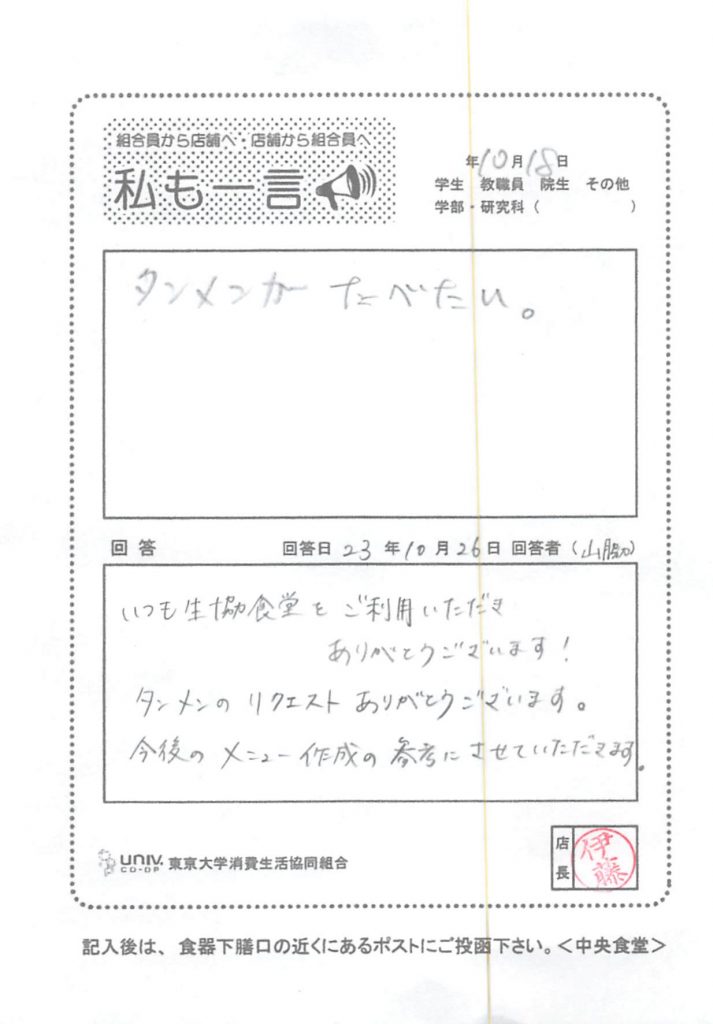 組合員から店舗へ・店舗から組合員へ
私も一言
年10月18日
学生 教職員 院生 その他
学部・研究科( )
タンメンが たべたい。
回答 回答日 23年10月26日 回答者(山脇)
いつも生協食堂をご利用いただき
ありがとうございます!
タンメンのリクエストありがとうございます。
今後のメニュー作成の参考にさせていただきます。
UNIV. CO-OP 東京大学消費生活協同組合
店長 伊藤
記入後は、食器下膳口の近くにあるポストにご投函下さい。<中央食堂>